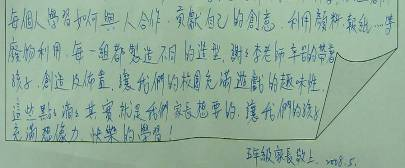 每個人學習如何與人合作、貢獻自己的創意、利用顏料、報紙…等
廢物利用,每一組都製造不同的造型,謝謝李老師辛苦的帶著
孩子,創造及佈置,讓我們的校園充滿遊戲的趣味性,
這些點滴,其實就是我們家長想要的,讓我們的孩子
充滿想像力、快樂的學習!
五年級家長敬上 2008.5.